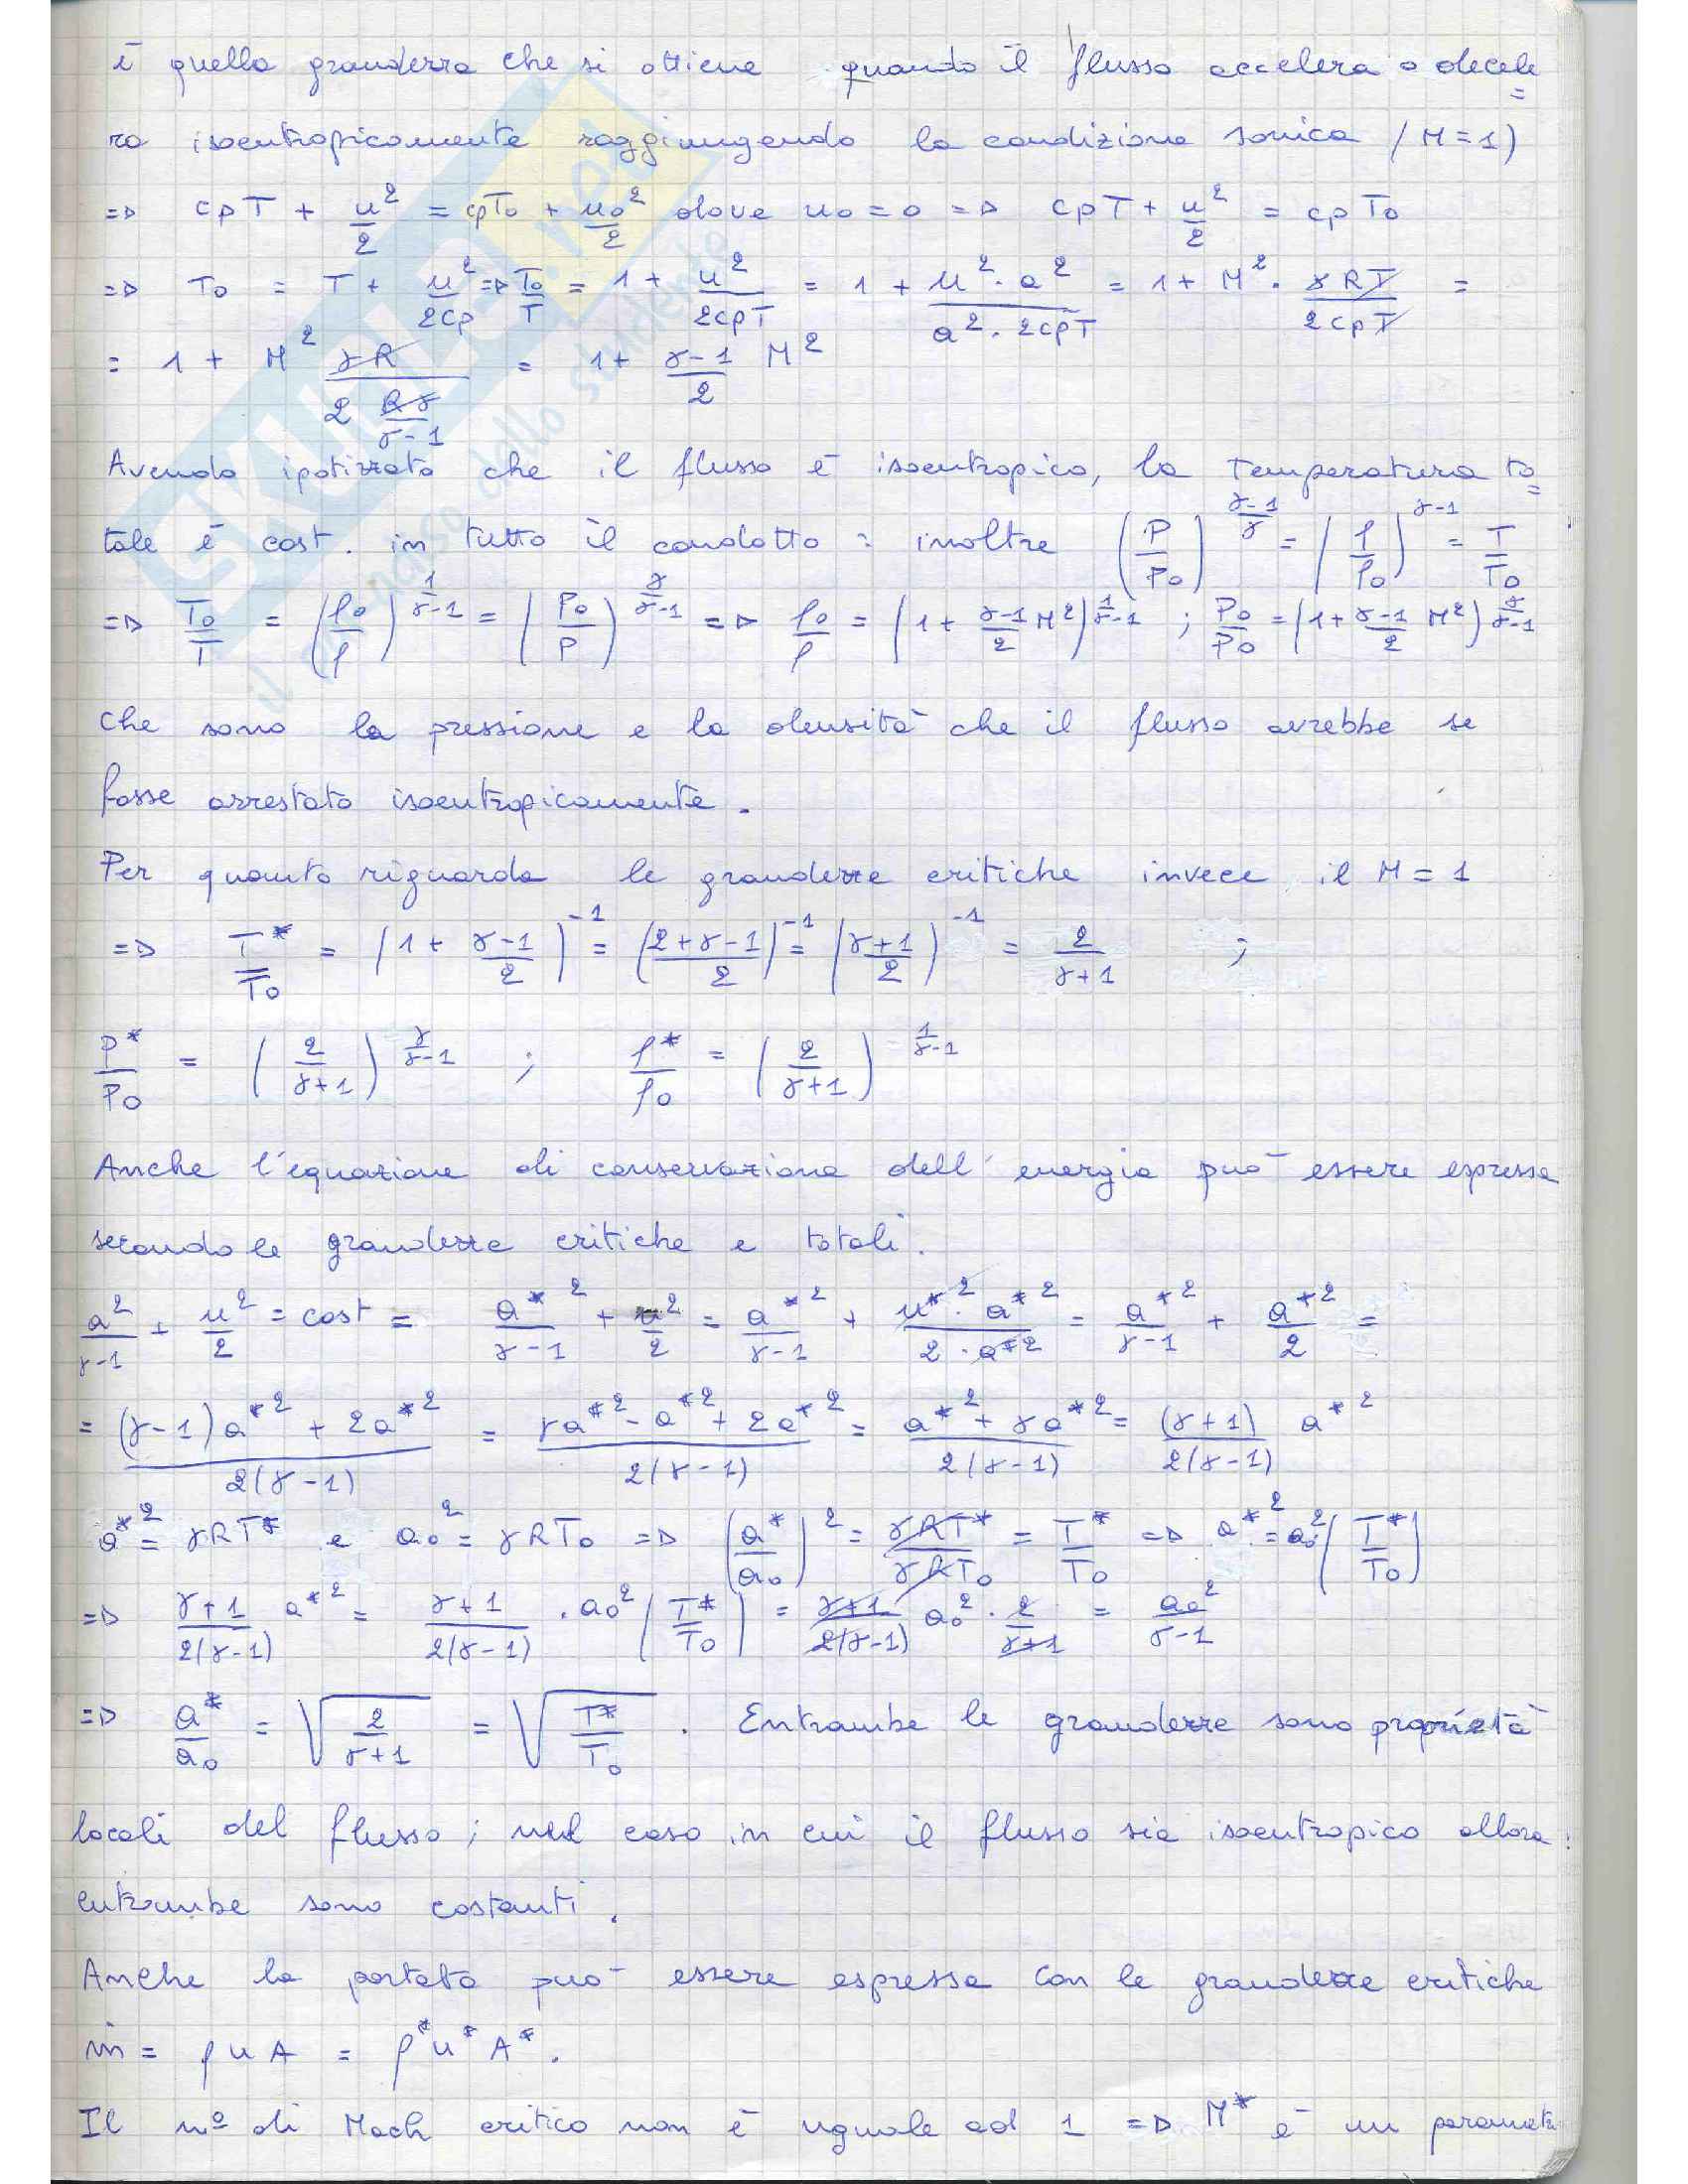 è quella grandezza che si ottiene quando il flusso accelera o decele=
ra isoentropicamente raggiungendo la condizione sonica (M=1)
=> cpT + u²/2 = cpT₀ + u₀²/2 dove u₀=0 => cpT + u²/2 = cpT₀
=> T₀ = T + u²/2cp => T₀/T = 1 + u²/2cpT = 1 + u²·a²/a²·2cpT = 1 + M²·γRT/2cpT =
= 1 + M² γR/(2 Rγ/(γ-1)) = 1 + (γ-1)/2 M²
Avendo ipotizzato che il flusso è isoentropico, la temperatura to=
tale è cost. in tutto il condotto: inoltre (P/P₀)^((γ-1)/γ) = (ρ/ρ₀)^(γ-1) = T/T₀
=> T₀/T = (ρ₀/ρ)^(1/(γ-1)) = (P₀/P)^(γ/(γ-1)) => ρ₀/ρ = (1 + (γ-1)/2 M²)^(1/(γ-1)) ; P₀/P₀ = (1 + (γ-1)/2 M²)^(γ/(γ-1))
che sono la pressione e la densità che il flusso avrebbe se
fosse arrestato isoentropicamente.
Per quanto riguarda le grandezze critiche invece il M=1
=> T*/T₀ = (1 + (γ-1)/2)^-1 = ((2+γ-1)/2)^-1 = ((γ+1)/2)^-1 = 2/(γ+1) ;
P*/P₀ = (2/(γ+1))^(γ/(γ-1)) ; ρ*/ρ₀ = (2/(γ+1))^(1/(γ-1))
Anche l'equazione di conservazione dell'energia può essere espressa
secondo le grandezze critiche e totali.
a²/(γ-1) + u²/2 = cost = a*²/(γ-1) + u²/2 = a*²/(γ-1) + u*²·a*²/2·a*² = a*²/(γ-1) + a*²/2 =
= ((γ-1)a*² + 2a*²)/2(γ-1) = (γa*² - a*² + 2a*²)/2(γ-1) = (a*² + γa*²)/2(γ-1) = (γ+1)/2(γ-1) a*²
a*² = γRT* e a₀² = γRT₀ => (a*/a₀)² = γRT*/γRT₀ = T*/T₀ => a*² = a₀²(T*/T₀)
=> (γ+1)/2(γ-1) a*² = (γ+1)/2(γ-1) · a₀²(T*/T₀) = (γ+1)/2(γ-1) a₀² · 2/(γ+1) = a₀²/(γ-1)
=> a*/a₀ = √(2/(γ+1)) = √(T*/T₀) . Entrambe le grandezze sono proprietà
locali del flusso; nel caso in cui il flusso sia isoentropico allora
entrambe sono costanti.
Anche la portata può essere espressa con le grandezze critiche
ṁ = ρuA = ρ*u*A*.
Il nº di Mach critico non è uguale ad 1 => M* è un paramet
SKUOLA.net
il paradiso dello studente